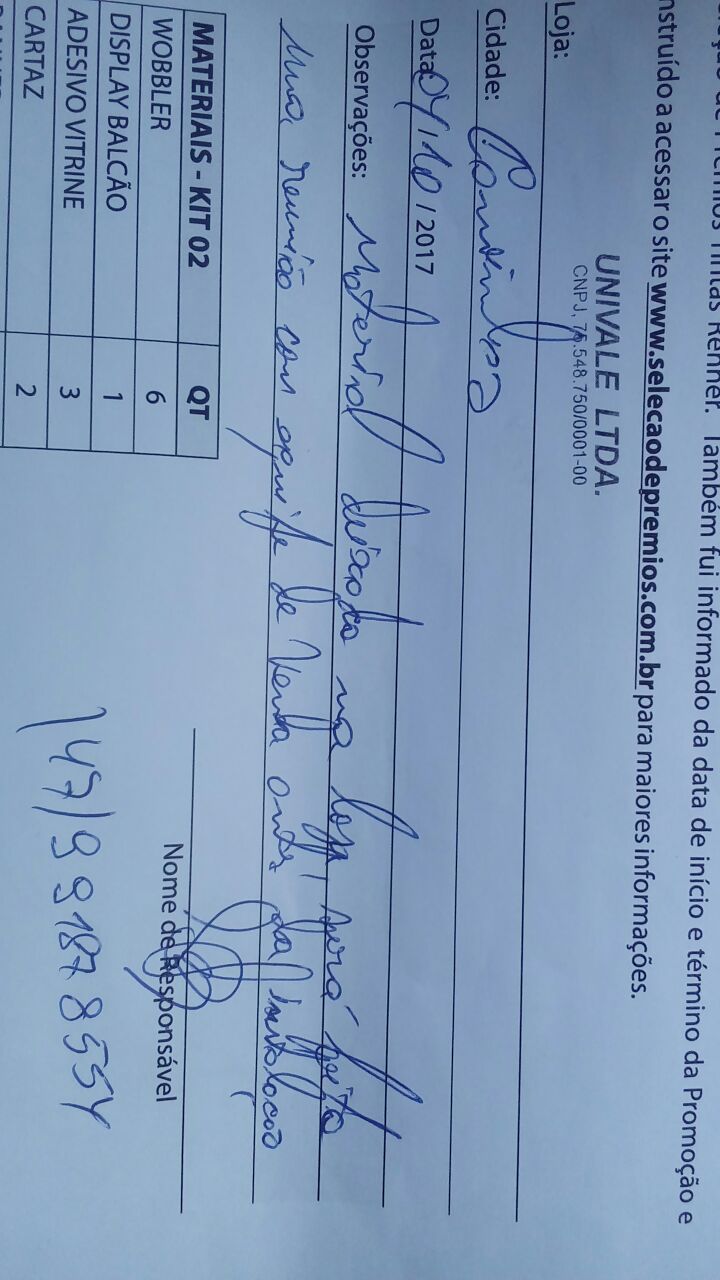 Também fui informado da data de início e término da Promoção e
nstruído a acessar o site www.selecaodepremios.com.br para maiores informações.
UNIVALE LTDA.
CNPJ. 75.548.750/0001-00
Loja:
Cidade:
Data: 04/10/2017
Observações: Material deixado na loja, será feito
uma reunião com equipe de Venda antes da instalação
Nome de Responsável
(47) 99187 8554
MATERIAIS - KIT 02 QT
WOBBLER 6
DISPLAY BALCÃO 1
ADESIVO VITRINE 3
CARTAZ 2